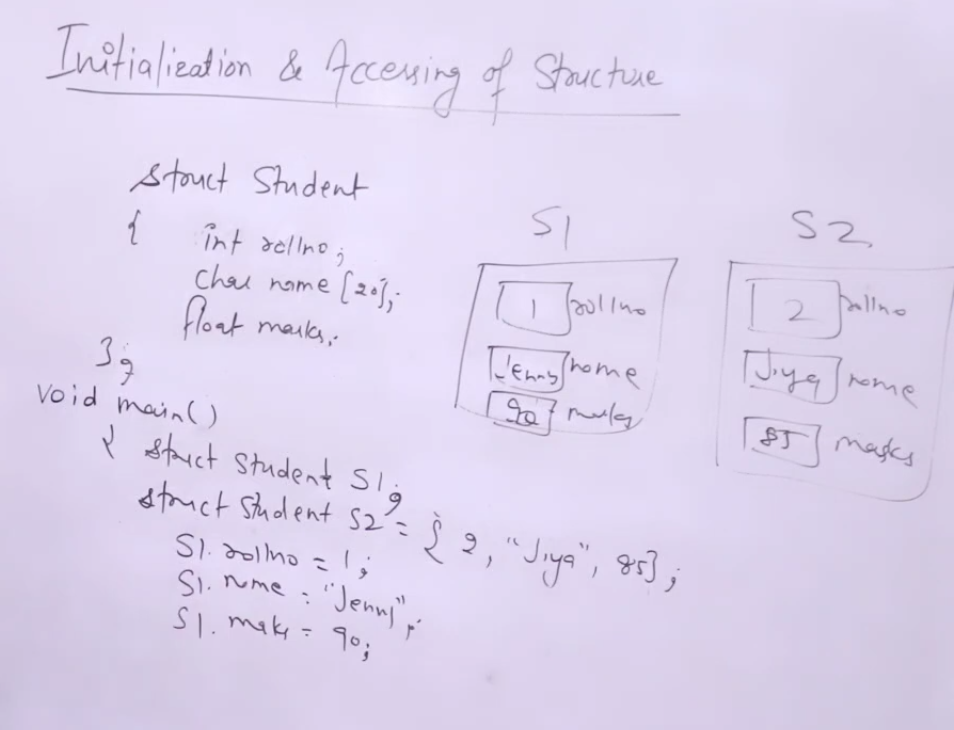 Initialization & Accessing of Structure
struct Student
{ int rollno;
char name [20];
float marks;
};
void main()
{ struct Student S1;
struct Student S2 = { 2, "Jiya", 85};
S1. rollno = 1;
S1. name = "Jenny";
S1. marks = 90;
S1
1 rollno
Jenny name
90 marks
S2
2 rollno
Jiya name
85 marks